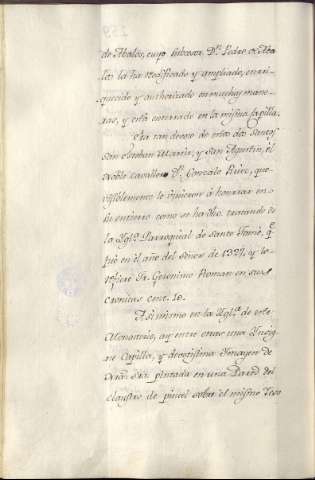 de Abalos, cuyo Patron, Dⁿ. Pedro de Aba
los la ha reedificado y ampliado, enrri-
quecido y authorizado en muchas mane-
ras, y está enterrado en la misma capilla.
Era tan devoto de estos dos santos
san Esteban Martir, y san Agustin, el
noble cavallero Dⁿ. Gonzalo Ruiz, que
visiblemente le vinieron á honrrar en
su entierro como se ha dho. tratando de
la Yglª. Parroquial de santo Thomé, qᵉ
fué en el año del señor de 1327, y lo
refiere Fr. Geronimo Roman en sus
cronicas cent. 10.
Asimismo en la Yglª. de este
Monasterio, ay entre otras una Insig-
ne Capilla, y devotisima Imagen de
nrã. Srã. pintada en una Pared del
claustro de pincel sobre el mismo Yeso